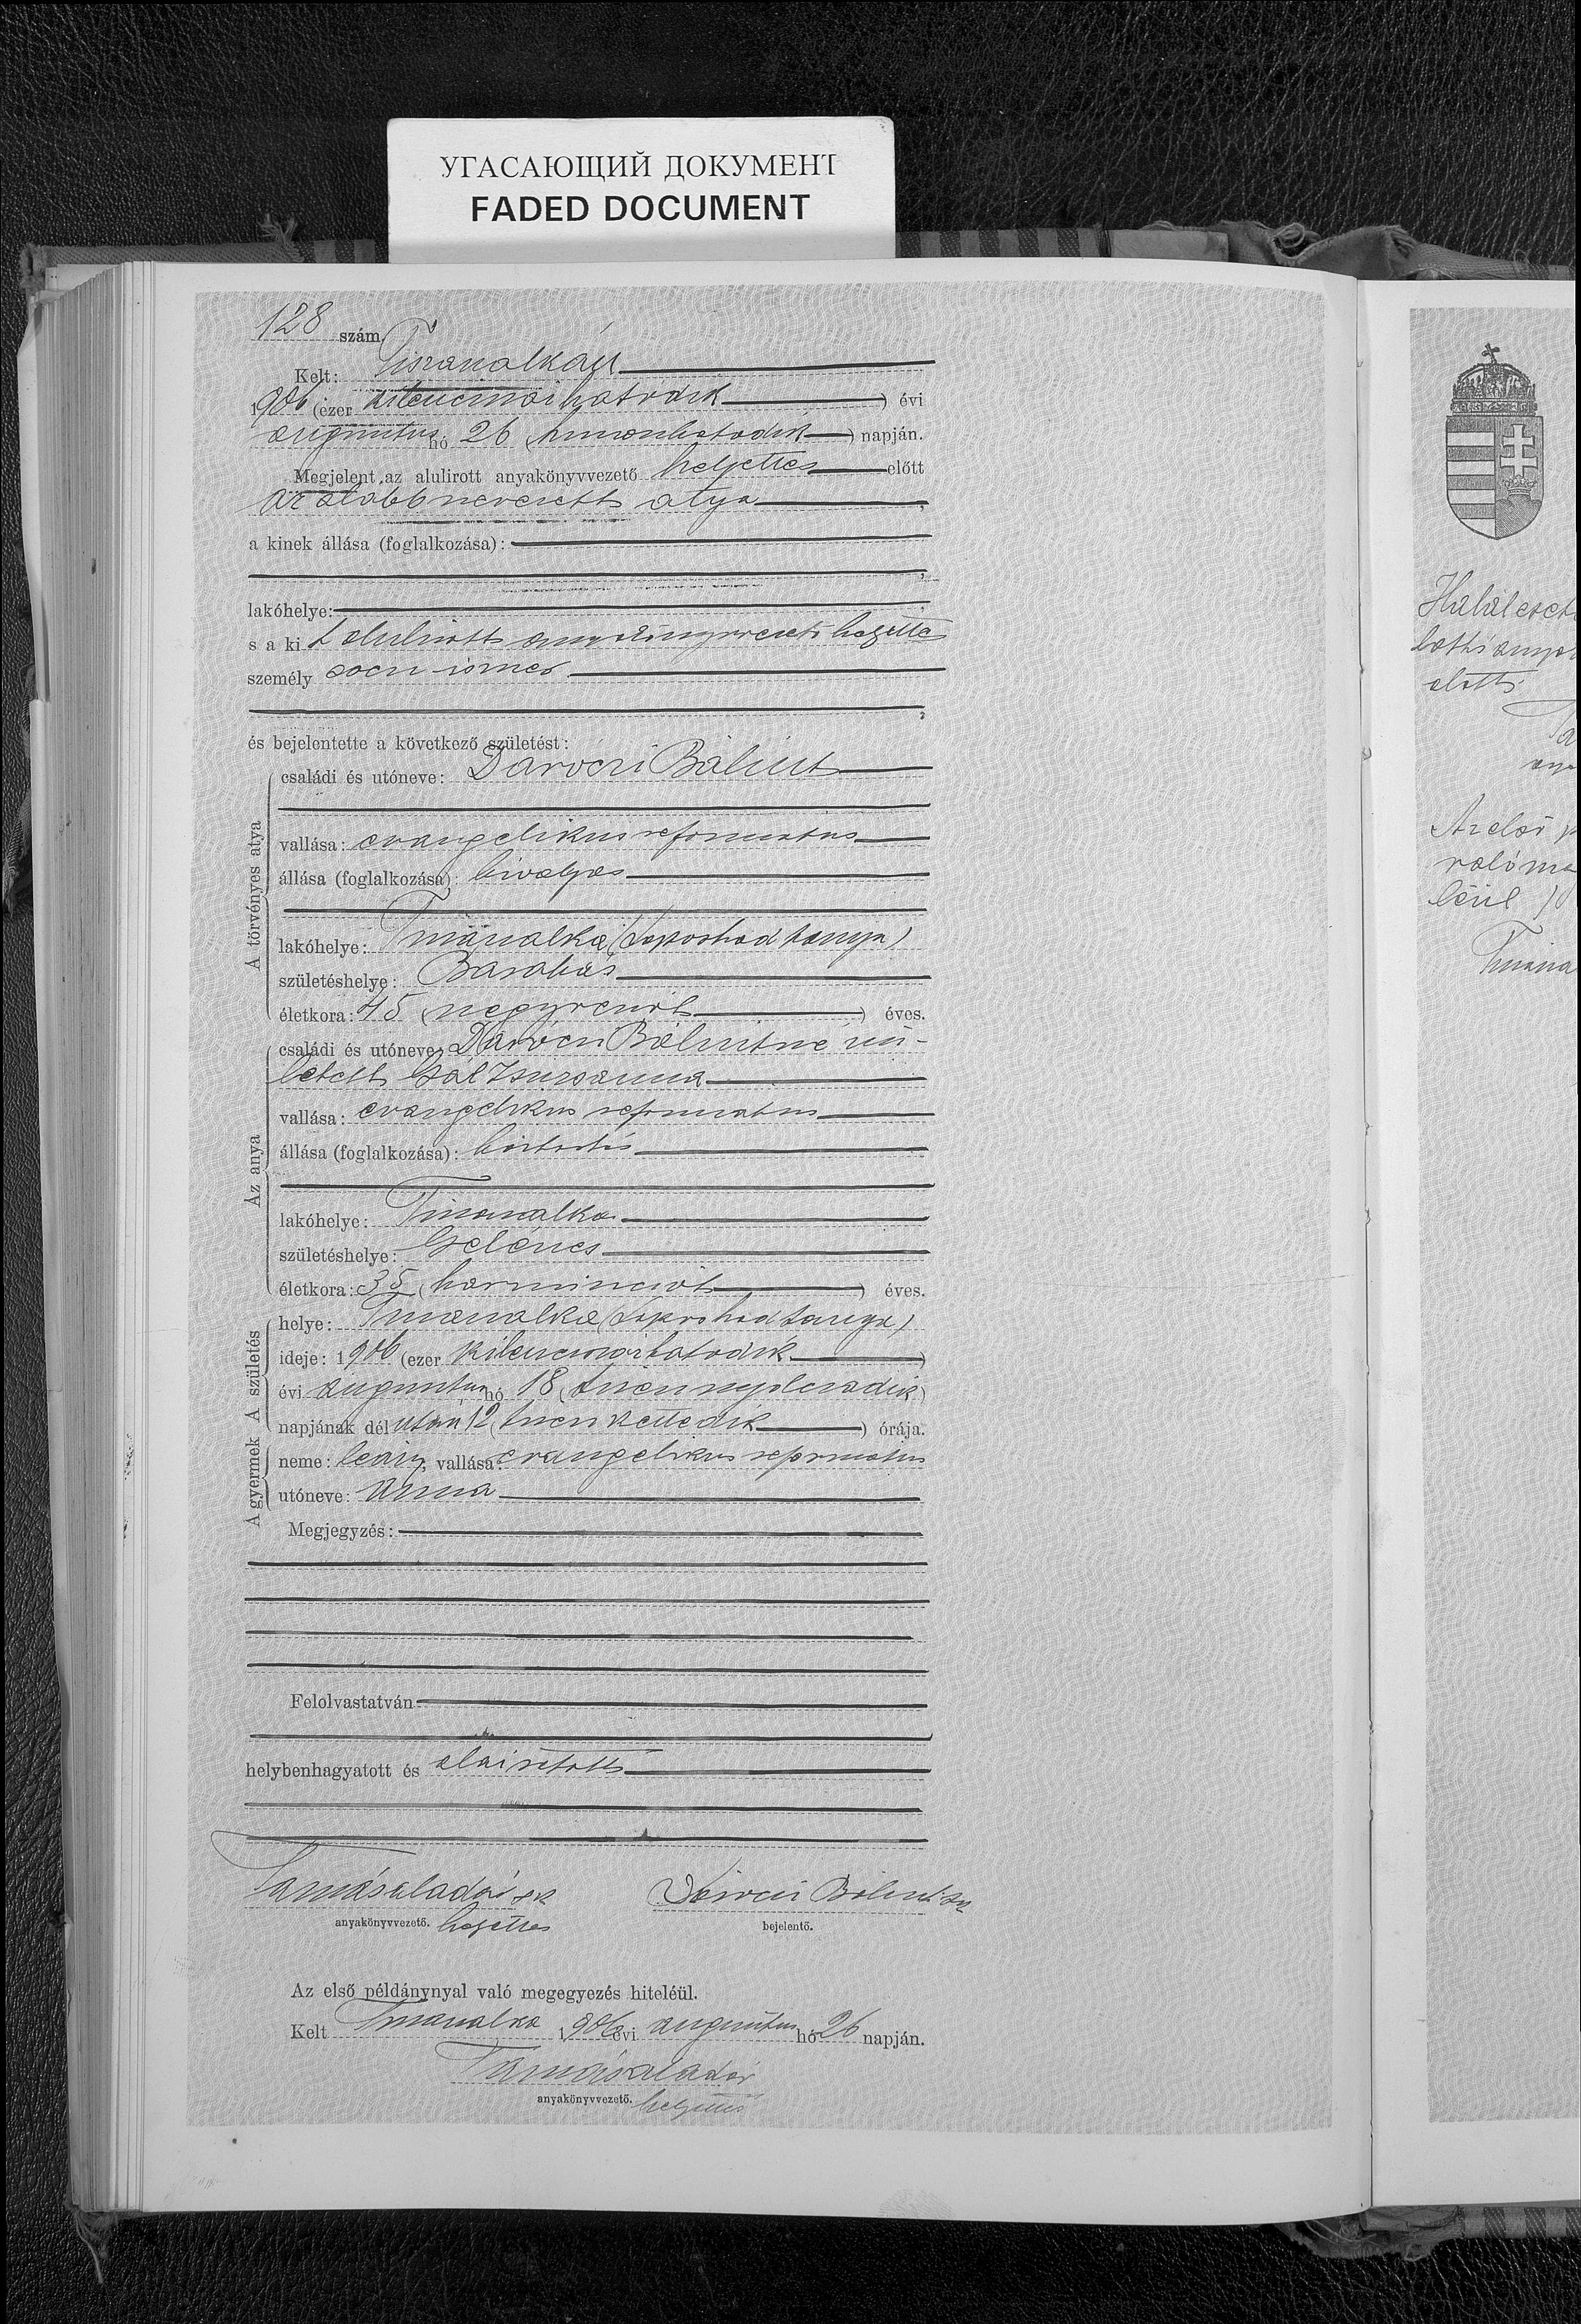 УГАСАЮЩИЙ ДОКУМЕНТ
FADED DOCUMENT
128 szám.
Kelt:
1906 (ezer kilencszázhatodik) évi
augusztus hó 26 (huszonhatodik) napján.
Megjelent az alulirott anyakönyvvezető helyettes előtt
az alább nevezett atya,
a kinek állása (foglalkozása):
lakóhelye:
s a ki t alulirott anyakönyvvezető helyettes
személy esen ismer
és bejelentette a következő születést:
A törvényes atya
családi és utóneve: Daróczi Bálint
vallása: evangelikus református
állása (foglalkozása):
lakóhelye: Tiszánalka ( tanya)
születéshelye: Barabás
életkora: 45 (negyvenöt) éves.
Az anya
családi és utóneve: Daróczi Bálintné szü-
letett Gál Zsuzsanna
vallása: evangelikus református
állása (foglalkozása): háztartás
lakóhelye: Tiszanalka
születéshelye: Gelénes
életkora: 35 (harmincöt) éves.
A születés
helye: Tiszanalka ( tanya)
ideje: 1906 (ezer kilencszázhatodik)
évi augusztus hó 18 (tizennyolcadik)
napjának dél után 12 (tizenkettedik) órája.
A gyermek
neme: leány, vallása: evangelikus református
utóneve: Anna
Megjegyzés:
Felolvastatván
helybenhagyatott és aláiratott
Tamás Aladár sk
Daróczi Bálint sk
anyakönyvvezető. helyettes
bejelentő.
Az első példánynyal való megegyezés hiteléül.
Kelt Tiszanalka 1906 évi augusztus hó 26 napján.
Tamás Aladár
anyakönyvvezető. helyettes
Haláleset
előtt
Az első p
való me
léül